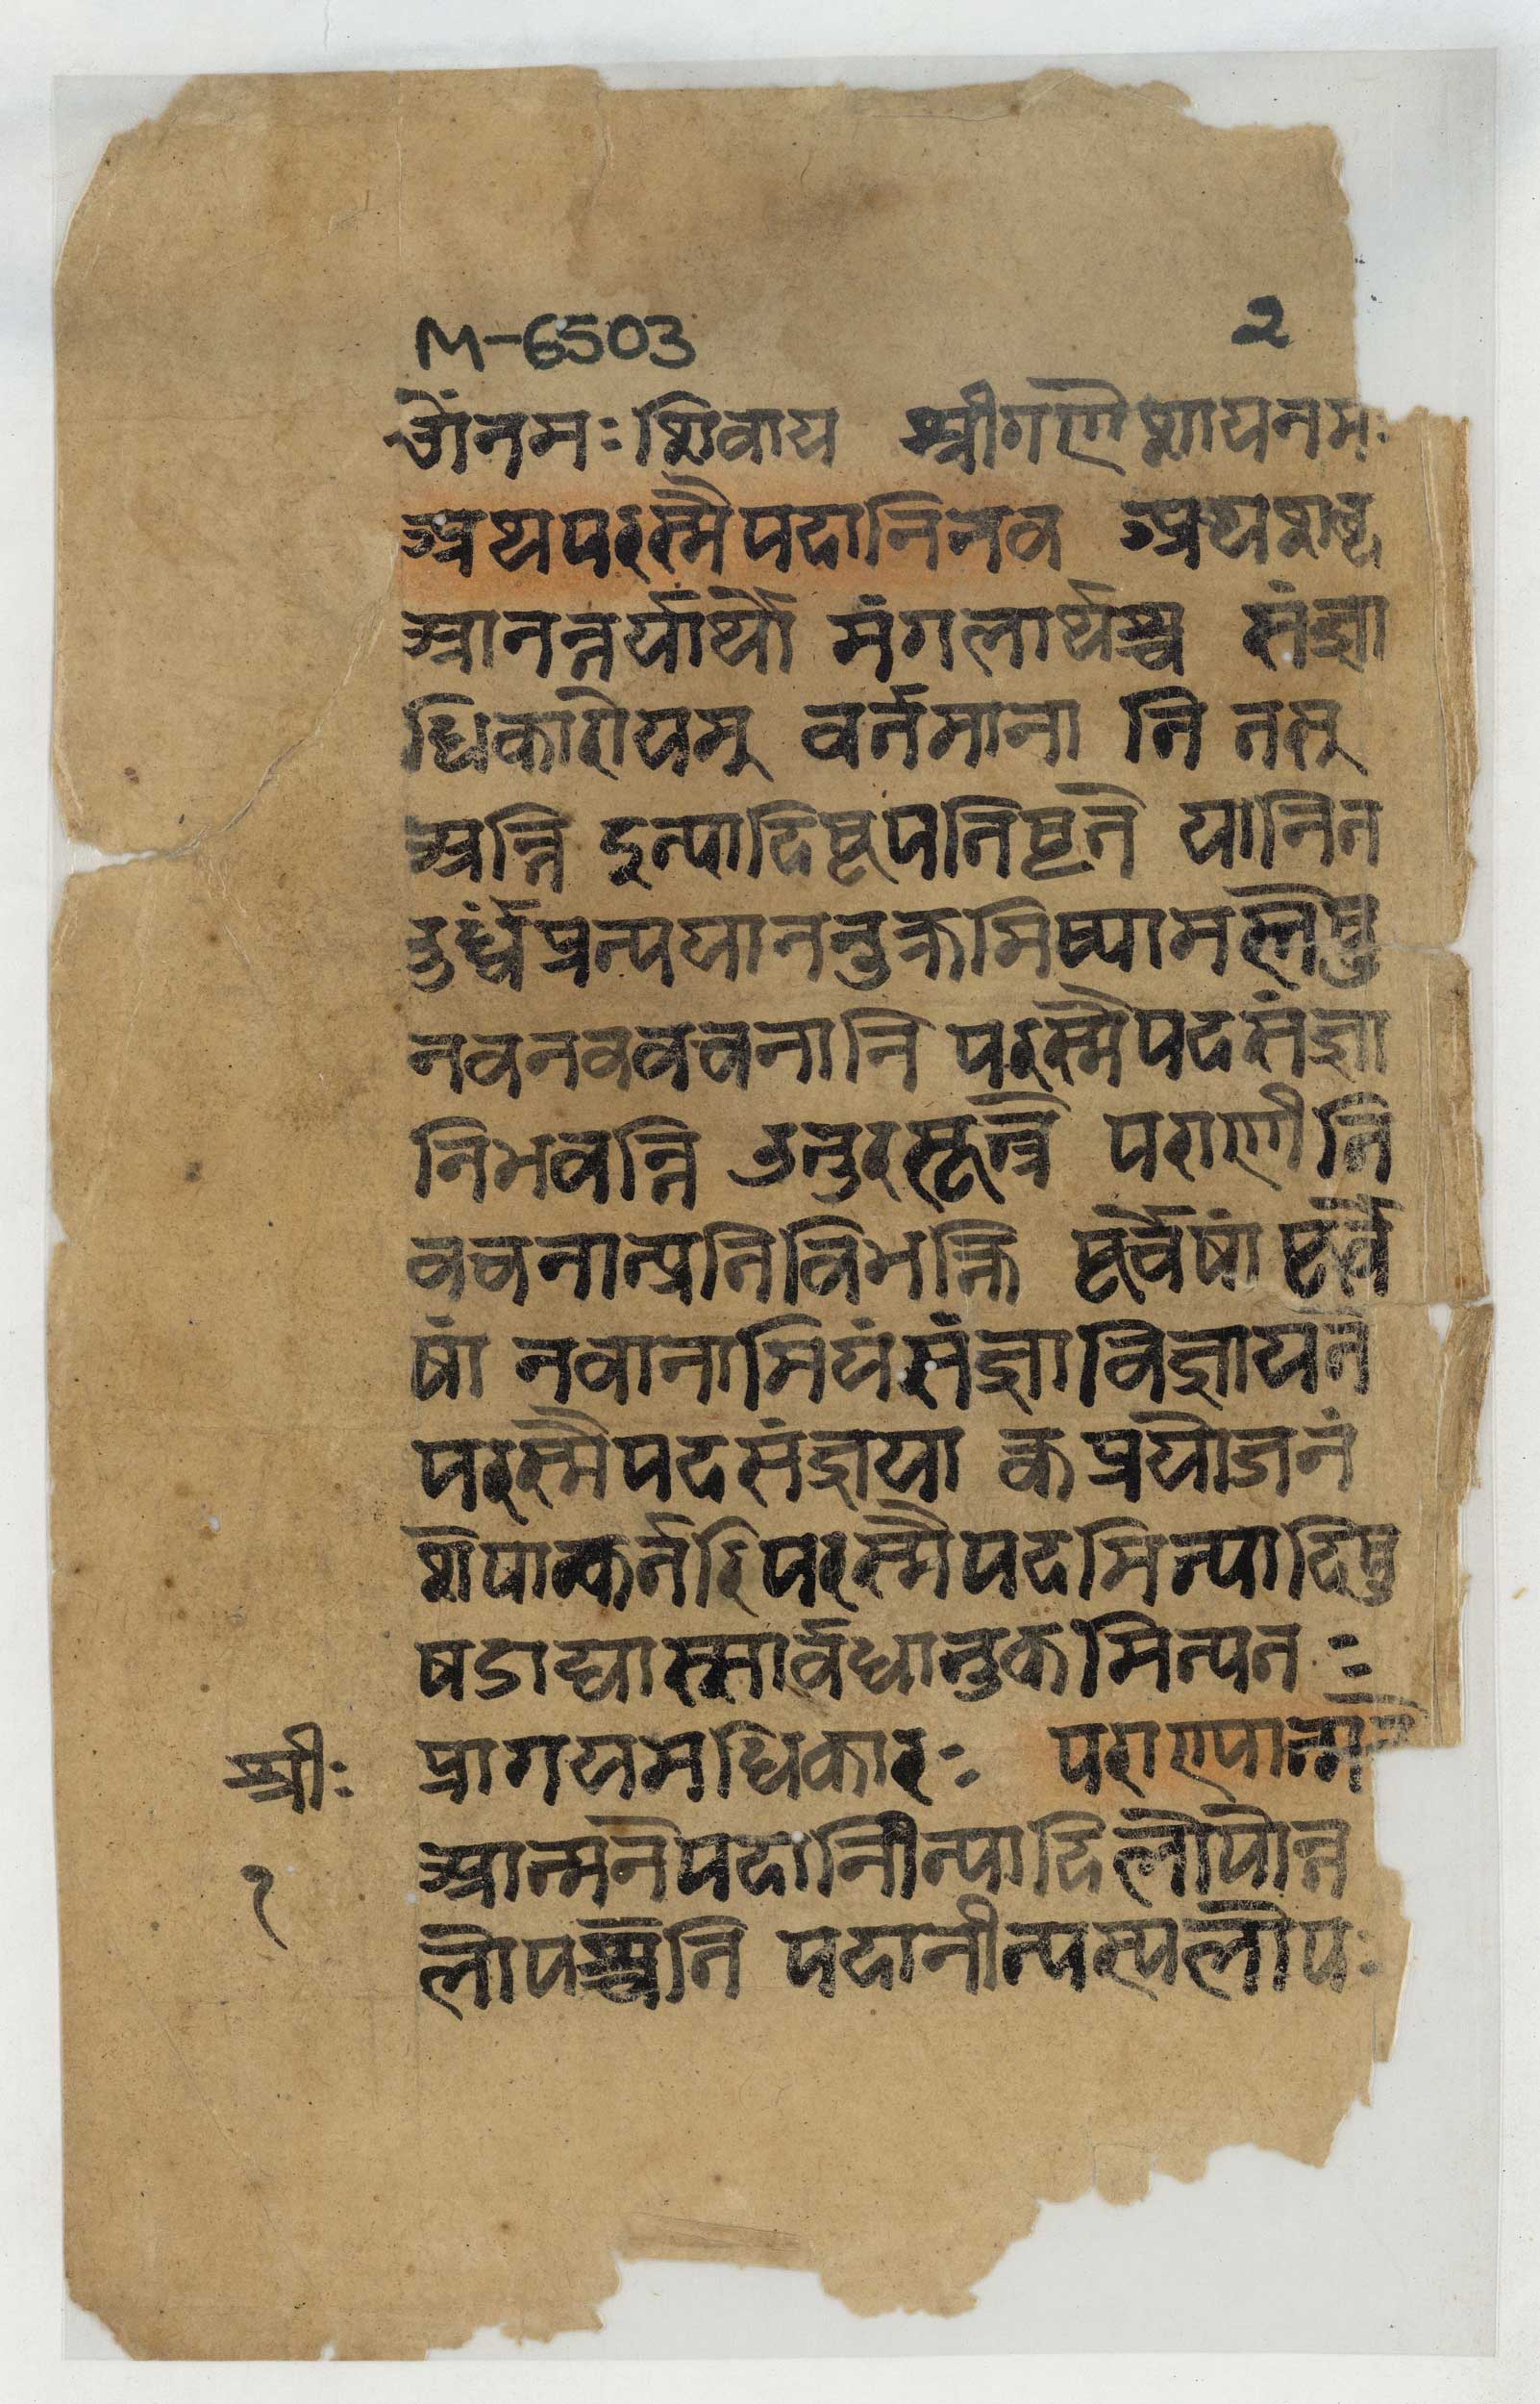 M-6503 २
ओंनमःशिवाय श्रीगणेशायनमः
अथपरस्मैपदानिनव अथशब्द
आनन्तर्यार्थो मंगलार्थश्च संज्ञा
धिकारोयम् वर्तमाना ति तस्
अन्ति इत्यादिषूपतिष्टते यानित
दुर्ध्वंप्रत्ययाननुक्रमिष्यामस्तेषु
नवनववचनानि परस्मैपदसंज्ञा
निभवन्ति उत्तरसूत्रे पराणीति
वचनात्प्रतिविभक्ति पूर्वेषां पूर्वे
षां नवानामियंसंज्ञाविज्ञायते
परस्मैपदसंज्ञाया क्व प्रयोजनं
शेषात्कर्तरिपरस्मैपदमित्यादिषु
षडाद्यास्सार्वधातुकमित्यतः
श्रीः प्रागयमधिकारः पराण्यात्मने
१ आत्मनेपदानीत्यादिलोपोन्त
लोपश्चेति पदानीत्यस्यलोपः